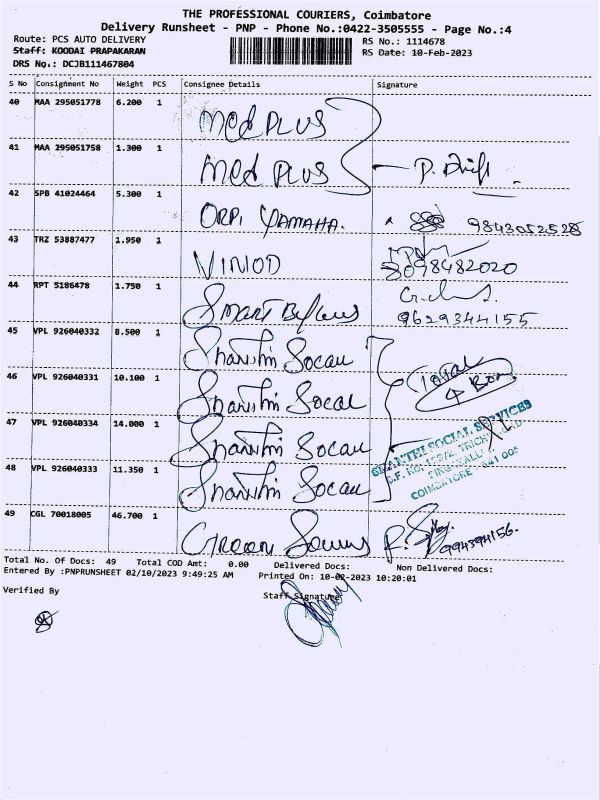 THE PROFESSIONAL COURIERS, Coimbatore
Delivery Runsheet - PNP - Phone No.:0422-3505555 - Page No.:4
Route: PCS AUTO DELIVERY
RS No.: 1114678
Staff: KOODAI PRAPAKARAN
RS Date: 10-Feb-2023
DRS No.: DCJB111467804
S No Consignment No Weight PCS Consignee Details Signature
40 MAA 295051778 6.200 1 Med PLUS
41 MAA 295051758 1.300 1 Med PLUS P.
42 SPB 41024464 5.300 1 ORPI YAMAHA. 9843052528
43 TRZ 53887477 1.950 1 VINOD 8098482020
44 RPT 5186478 1.750 1 Smart
9629344155
45 VPL 926040332 8.500 1 Shanthi Socal
46 VPL 926040331 10.100 1 Shanthi Socal Total
4 Box
47 VPL 926040334 14.000 1 Shanthi Socal
SHANTHI SOCIAL SERVICES
COIMBATORE - 641 005
48 VPL 926040333 11.350 1 Shanthi Socal
49 CGL 70018005 46.700 1 Green R.
994394156.
Total No. Of Docs: 49 Total COD Amt: 0.00 Delivered Docs: Non Delivered Docs:
Entered By :PNPRUNSHEET 02/10/2023 9:49:25 AM Printed On: 10-02-2023 10:20:01
Verified By Staff Signature